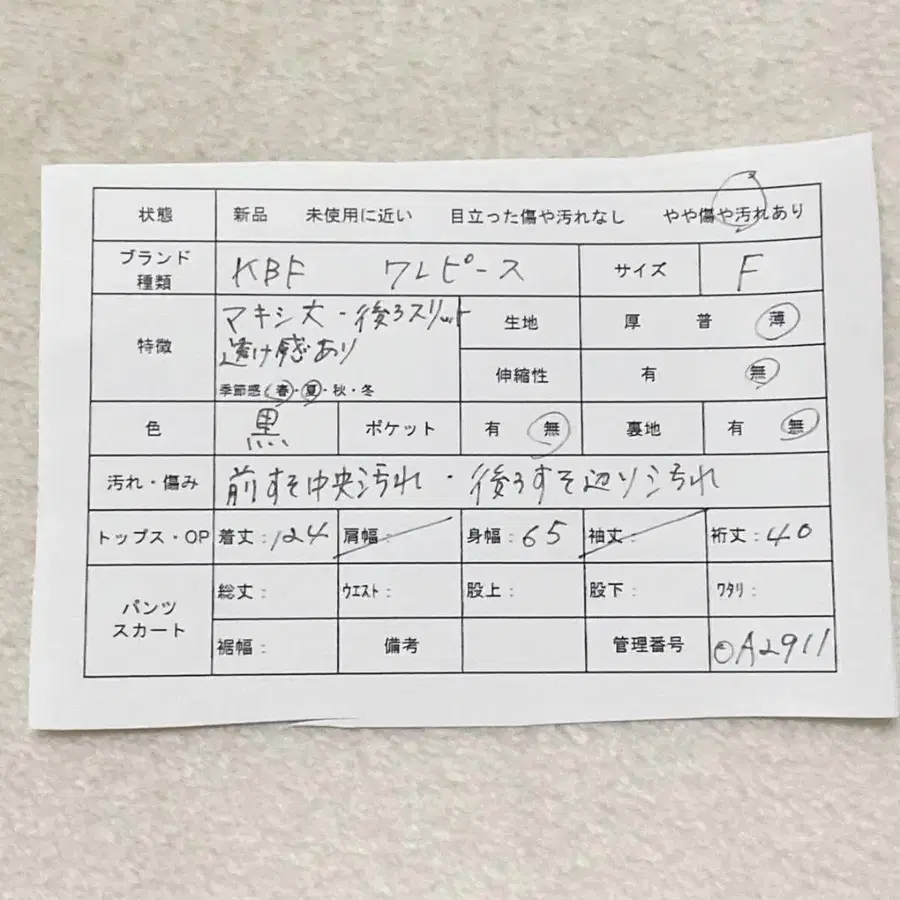 状態 新品 未使用に近い 目立った傷や汚れなし やや傷や汚れあり
ブランド種類 KBF ワンピース サイズ F
特徴 マキシ丈・後ろスリット
透け感あり
季節感(春・夏・秋・冬
生地 厚 普 薄
伸縮性 有 無
色 黒 ポケット 有 無 裏地 有 無
汚れ・傷み 前すそ中央汚れ・後ろすそ辺り汚れ
トップス・OP 着丈:124 肩幅: 身幅:65 袖丈: 裄丈:40
パンツ
スカート
総丈: ウエスト: 股上: 股下: ワタリ:
裾幅: 備考 管理番号 OA2911